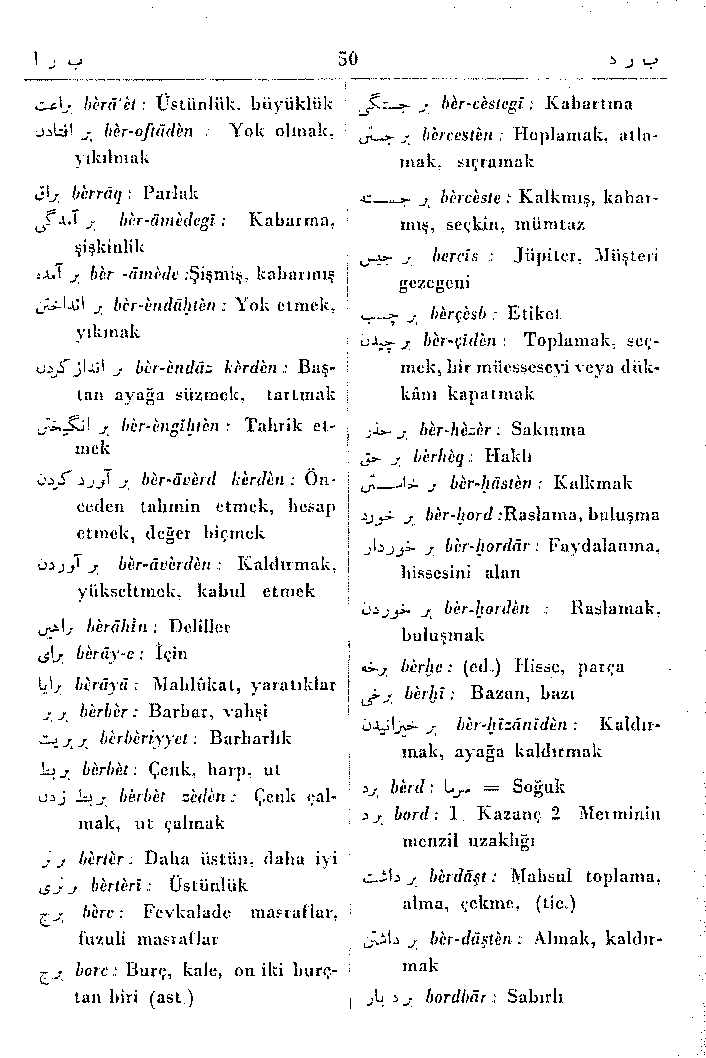 ب ر ا 50 ب ر د
براعت bèrā'èt : Üstünlük, büyüklük
بر افتادن bèr-oftādèn : Yok olmak,
yıkılmak
براق bèrrāq : Parlak
بر آمدگی bèr-āmèdegī : Kabarma,
şişkinlik
بر آمده bèr -āmède :Şişmiş, kabarmış
بر انداختن bèr-èndāḫtèn : Yok etmek,
yıkmak
بر انداز کردن bèr-èndāz kèrdèn : Baş-
tan ayağa süzmek, tartmak
بر انگیختن bèr-èngīḫtèn : Tahrik et-
mek
بر آورد کردن bèr-āvèrd kèrdèn : Ön-
ceden tahmin etmek, hesap
etmek, değer biçmek
بر آوردن bèr-āvèrdèn : Kaldırmak,
yükseltmek, kabul etmek
براهین bèrāhīn : Deliller
برای bèrāy-e : İçin
برایا bèrāyā : Mahlûkat, yaratıklar
بر بر bèrbèr : Barbar, vahşi
بر بریت bèrbèriyyet : Barbarlık
بربط bèrbèt : Çenk, harp, ut
بربط زدن bèrbèt zèdèn : Çenk çal-
mak, ut çalmak
بر تر bèrtèr : Daha üstün, daha iyi
بر تری bèrtèrī : Üstünlük
برج bèrc : Fevkalade masraflar,
fuzuli masraflar
برج borc : Burç, kale, on iki burç-
tan biri (ast.)
بر جستگی bèr-cèstegī : Kabartma
بر جستن bèrcestèn : Hoplamak, atla-
mak, sıçramak
بر جسته bèrcèste : Kalkmış, kabar-
mış, seçkin, mümtaz
بر جیس bercīs : Jüpiter, Müşteri
gezegeni
بر چسب bèrçèsb : Etiket
بر چیدن bèr-çīdèn : Toplamak, seç-
mek, bir müesseseyi veya dük-
kânı kapatmak
بر حذر bèr-hèzèr : Sakınma
بر حق bèrhèq : Haklı
بر خاستن bèr-ḫāstèn : Kalkmak
بر خورد bèr-ḫord :Raslama, buluşma
بر خوردار bèr-ḫordār : Faydalanma,
hissesini alan
بر خوردن bèr-ḫordèn : Raslamak,
buluşmak
برخه bèrḫe : (ed.) Hisse, parça
برخی bèrḫī : Bazan, bazı
بر خیزانیدن bèr-ḫīzānīdèn : Kaldır-
mak, ayağa kaldırmak
برد bèrd : سرما = Soğuk
برد bord : 1. Kazanç 2 Merminin
menzil uzaklığı
بر داشت bèrdāşt : Mahsul toplama,
alma, çekme, (tic.)
بر داشتن bèr-dāştèn : Almak, kaldır-
mak
برد بار bordbār : Sabırlı